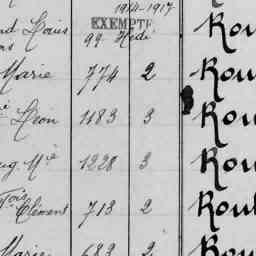 1914-1917
nd Louis EXEMPTÉ Rou
99 Hedi
Marie 774 2 Rou
Léon 1183 3 Rou
ug. Mie 1228 3 Rou
Fois
Clément 713 2 Roul
Marie 683 2 Rou